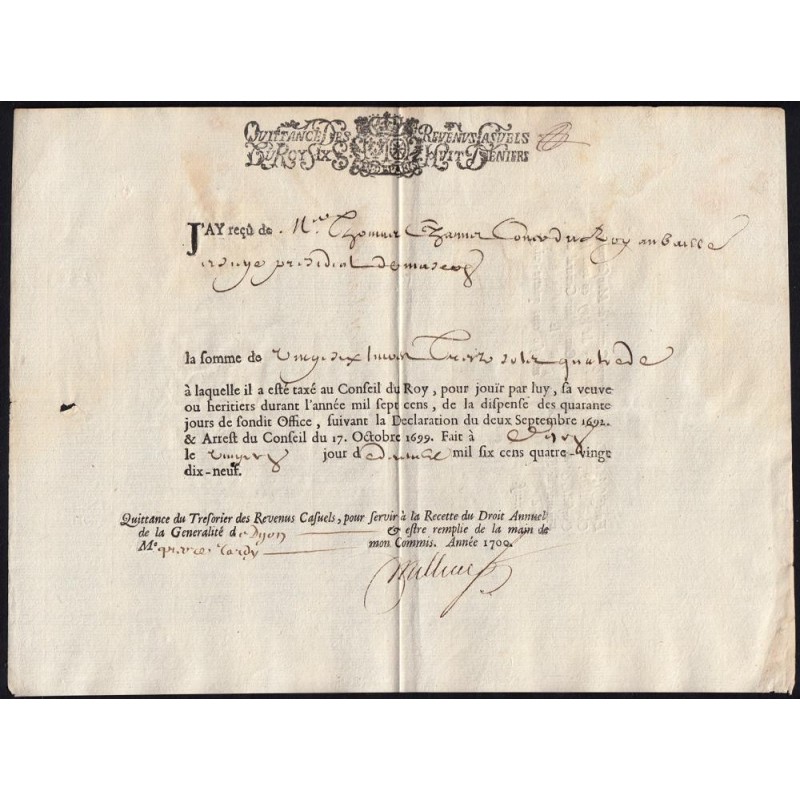 QUITTANCE DES REVENUS CASUELS
DU ROY SIX S HUIT DENIERS
J'AY reçû de Mre Thomas du Roy au bailla
presidial de
la somme de vingt six livres treize solz quatre de
à laquelle il a esté taxé au Conseil du Roy, pour joüir par luy, sa veuve
ou heritiers durant l'année mil sept cens, de la dispense des quarante
jours de sondit Office, suivant la Declaration du deux Septembre 1692.
& Arrest du Conseil du 17. Octobre 1699. Fait à Dijon
le jour de decembre mil six cens quatre-vingt
dix-neuf.
Quittance du Tresorier des Revenus Casuels, pour servir à la Recette du Droit Annuel
de la Generalité de Dijon & estre remplie de la main de
Me pierre tardy mon Commis. Année 1700.